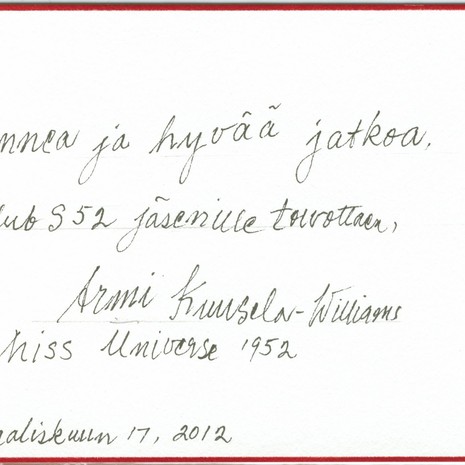 nnea ja hyvää jatkoa,
lub S52 jäsenille toivottaen,
Armi Kuusela-Williams
Miss Universe 1952
aaliskuun 17, 2012